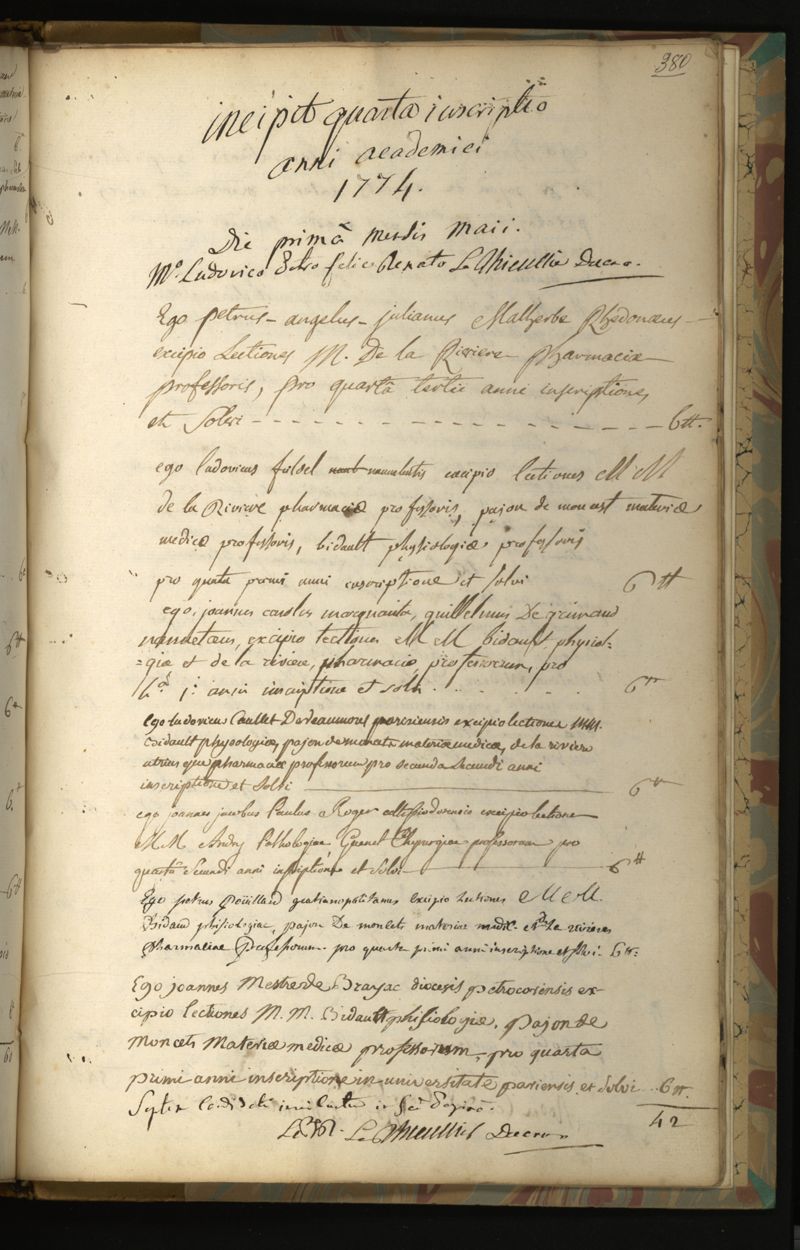 380
incipit quarta inscriptio
anni academici
1774.
Die primâ mensis maii.
Mo. Ludovico Petro felice Renato Le Thieullier Decano.
Ego petrus-angelus-julianus Malherbe Rhedonæus
excipio Lectiones M. De la Riviere pharmaciæ
professoris, pro quartâ tertii anni inscriptione,
et Solvi 6tt.
ego ludovicus excipio lectiones MM
de la Riviere pharmaciæ professoris, pajon de moncest materiæ
medicæ professoris, bidault physiologiæ professoris
pro quarta primi anni inscriptione et solvi 6tt
ego, joannes carolus guillelmus De grimaud
nannetæus, excipio lectiones MM bidault physiol-
=giæ et de la riviere, pharmaciæ, professorum, pro
4a 1i anni inscriptione et solvi 6tt
Ego ludovicus Caullet Deveaumorel parisiensis excipio lectiones MM.
Bidault physologiæ, pajon de moncets materiæ medicæ, de la riviere
utriusque pharmaciæ professorum pro secunda secundi anni
inscriptione et Solvi 6tt
ego joannes jacobus Paulus Roger excipio lectiones
MM Andry Pathologiæ Guenet Chyrurgiæ professorum pro
quartâ Secundi anni inscriptione et Solvi 6tt
Ego petrus gratianopolitanus Excipio Lectiones MM.
Bidaud phisiologiae, pajon De moncets materiae medic. et De La riviere
Pharmaciae Professorum. pro quarta primi anni inscriptione et solvi. 6tt.
Ego joannes Mestre de Brassac diocesis petrocorensis ex-
cipio lectiones M.M. Bidault phisiologiæ, pajon de
Moncets Materiæ medicæ professorum, pro quarta
primi anni inscriptione in universitate pariensis et Solvi 6tt.
Septem in hac paginâ.
42
Le Thieullier Decanus